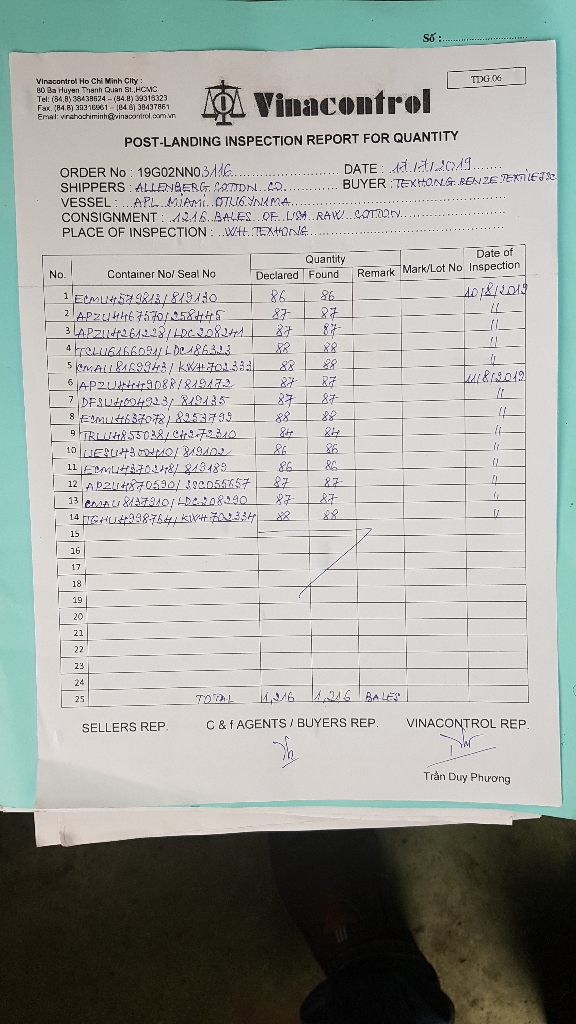 Số :
Vinacontrol Ho Chi Minh City :
80 Ba Huyen Thanh Quan St.,HCMC
Tel: (84.8) 38438624 – (84.8) 39316323
Fax. (84.8) 39316961 – (84.8) 38437861
Email: vinahochiminh@vinacontrol.com.vn
Vinacontrol
TDG.06
POST-LANDING INSPECTION REPORT FOR QUANTITY
ORDER No : 19G02NN03116 DATE : 17/7/2019
SHIPPERS : ALLENBERG COTTON CO BUYER : TEXHONG RENZE TEXTILE JSC
VESSEL : APL MIAMI 0TU6YN1MA
CONSIGNMENT : 1216 BALES OF USA RAW COTTON
PLACE OF INSPECTION : WH TEXHONG
No. Container No/ Seal No Quantity Remark Mark/Lot No Date of Inspection
Declared Found
1 ECMU4579813/819130 86 86 10/8/2019
2 APZU4467570/258445 87 87 "
3 APZU4261228/LDC208241 87 87 "
4 TCLU6166091/LDC186323 88 88 "
5 CMAU8169943/KWH702333 88 88 "
6 APZU4449088/819172 87 87 11/8/2019
7 DFSU4004923/819135 87 87 "
8 ECMU4637078/8253799 88 88 "
9 TRLU4855038/CH272310 84 84 "
10 819102 86 86 "
11 ECMU4370248/819189 86 86 "
12 APZU4870590/ 87 87 "
13 CMAU8137910/LDC208290 87 87 "
14 TGHU4998764/KWH702334 88 88 "
15
16
17
18
19
20
21
22
23
24
25 TOTAL 1,216 1,216 BALES
SELLERS REP. C & f AGENTS / BUYERS REP. VINACONTROL REP.
Trần Duy Phương